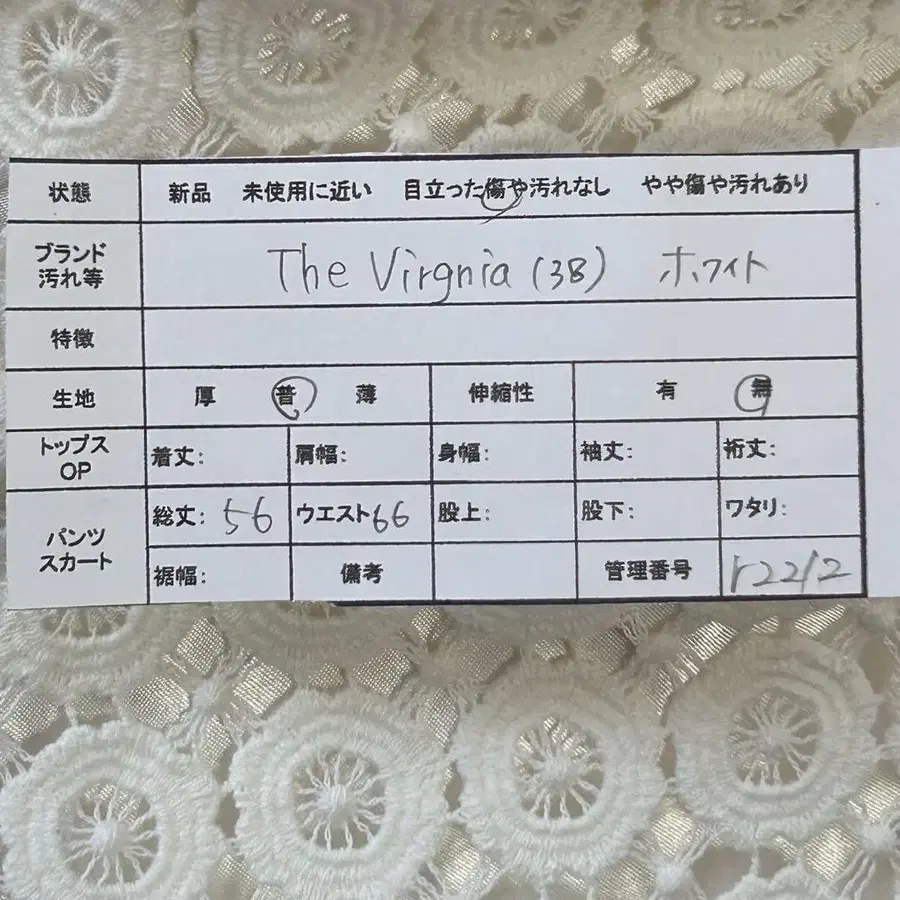 状態 新品 未使用に近い 目立った傷や汚れなし やや傷や汚れあり
ブランド
汚れ等
The Virgnia (38) ホワイト
特徴
生地 厚 普 薄 伸縮性 有 無
トップス
OP
着丈: 肩幅: 身幅: 袖丈: 裄丈:
パンツ
スカート
総丈: 56 ウエスト66 股上: 股下: ワタリ:
裾幅: 備考 管理番号 r2212